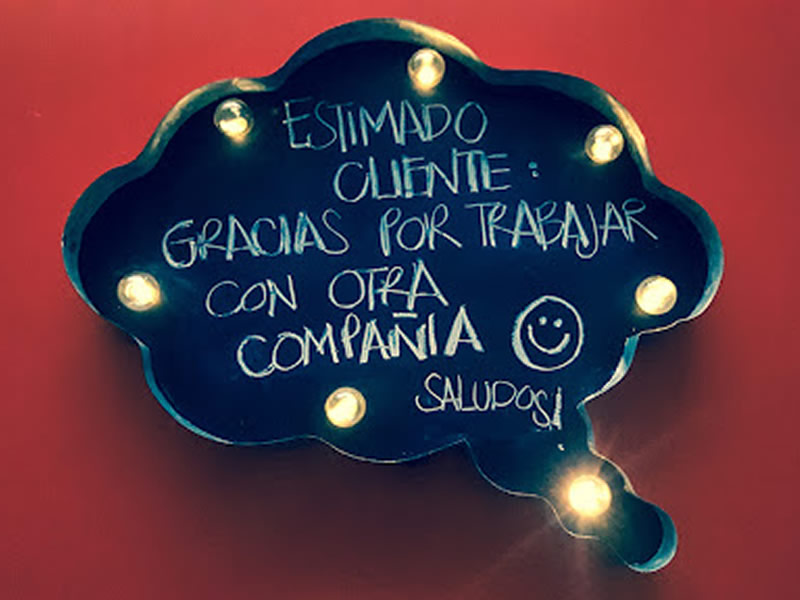 ESTIMADO
CLIENTE:
GRACIAS POR TRABAJAR
CON OTRA
COMPAÑIA
SALUDOS!